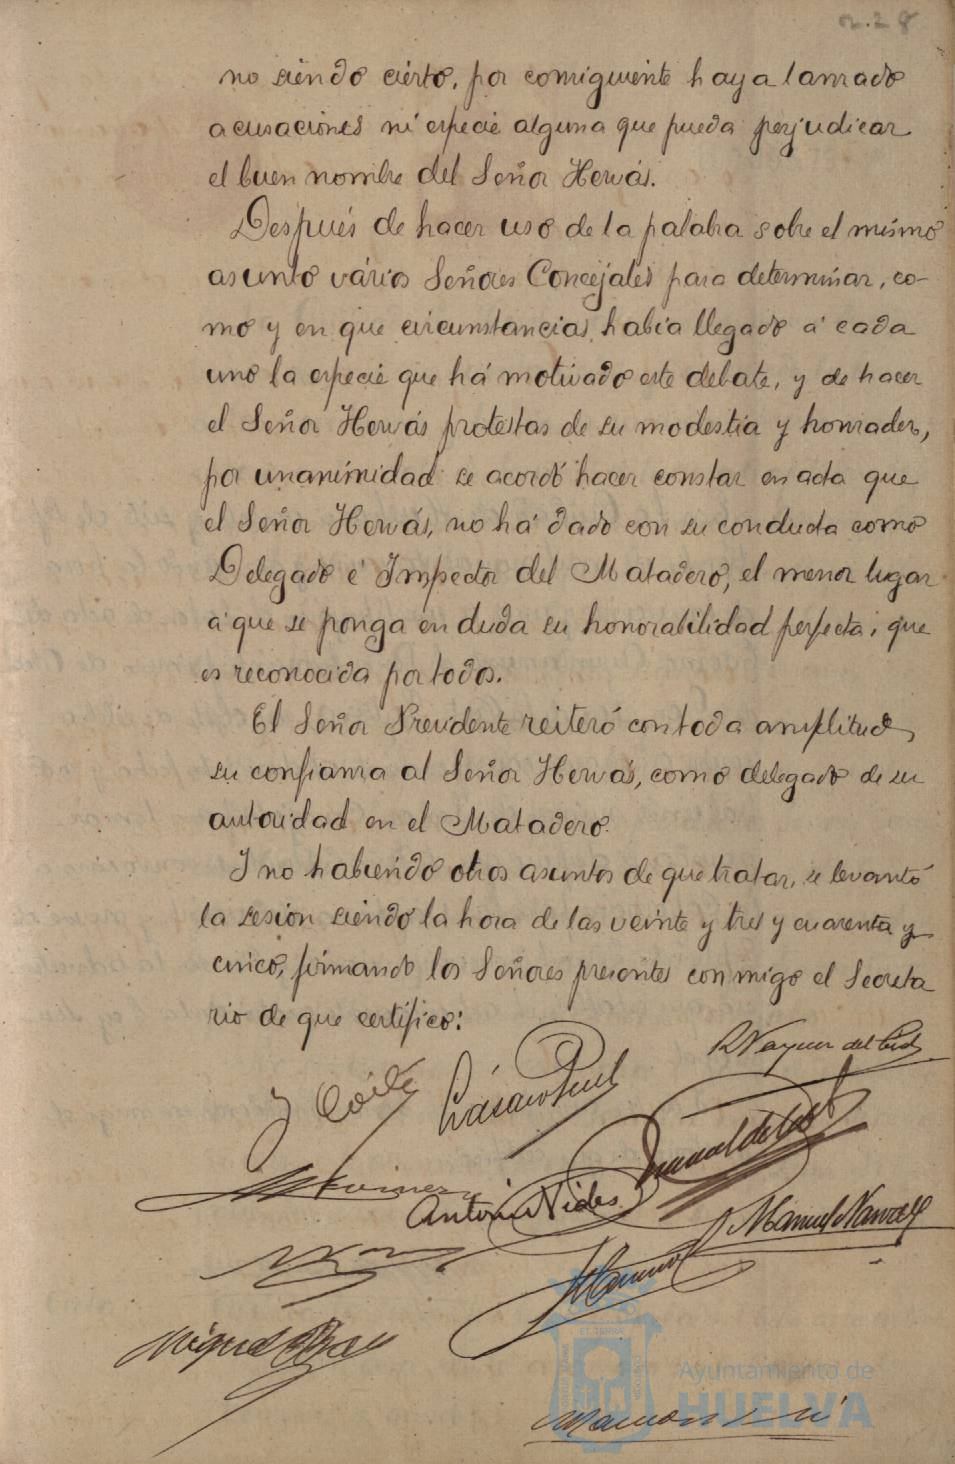 no siendo cierto, por consiguiente haya lanzado
acusaciones ni especie alguna que pueda perjudicar
el buen nombre del Señor Hervás.
Después de hacer uso de la palabra sobre el mismo
asunto vários Señores Concejales para determinar, co-
mo y en que circunstancias, habia llegado á cada
uno la especie que há motivado este debate, y de hacer
el Señor Hervás protestas de su modestia y honradez,
por unanimidad se acordó hacer constar en acta que
el Señor Hervás, no há dado con su conducta como
Delegado é Inspector del Matadero, el menor lugar
á que se ponga en duda su honorabilidad perfecta, que
es reconocida por todos.
El Señor Presidente reiteró con toda amplitud
su confianza al Señor Hervás, como delegado de su
autoridad en el Matadero.
Y no habiendo otros asuntos de que tratar, se levantó
la sesion siendo la hora de las veinte y tres y cuarenta y
cinco, firmando los Señores presentes conmigo el Secreta
rio de que certifico:
Antonio Vides
Manuel Navarro
Miguel
ET TERRAE
Ayuntamiento de
HUELVA